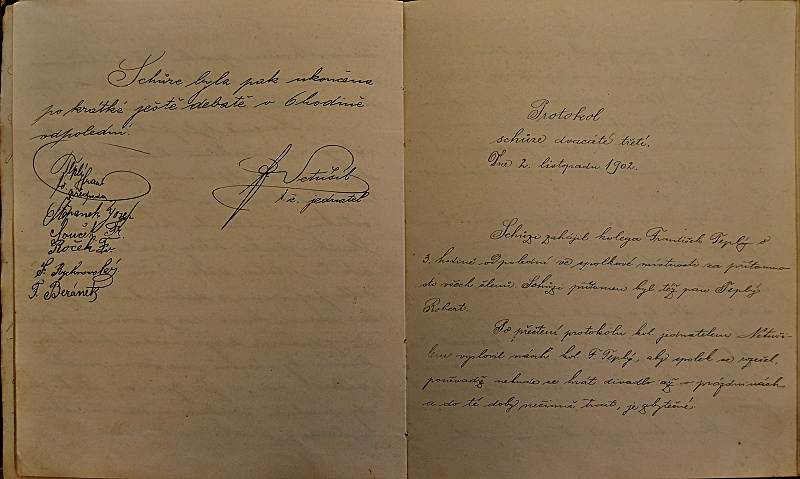 Schůze byla pak ukončena
po krátké ještě debatě o 6 hodině
odpolední.
Teplý Fran
t.č. předseda
Štěpanek Josef
Souček Fr.
Koček Fr.
F. Rychnovský
F. Beránek
A. Netušil
t.č. jednatel
Protokol
schůze dvacáté třetí.
Dne 2. listopadu 1902.
Schůzi zahájil kolega František Teplý o
3. hodině odpolední ve spolkové místnosti za přítomno-
sti všech členů. Schůzi přítomen byl též pan Teplý
Robert.
Po přečtení protokolu kol. jednatelem Netuši-
lem vyslovil návrh kol. F. Teplý, aby spolek se rozešel,
poněvadž nebude se hrát divadlo až o prázdninách
a do té doby nečinně trvati, je zbytečné